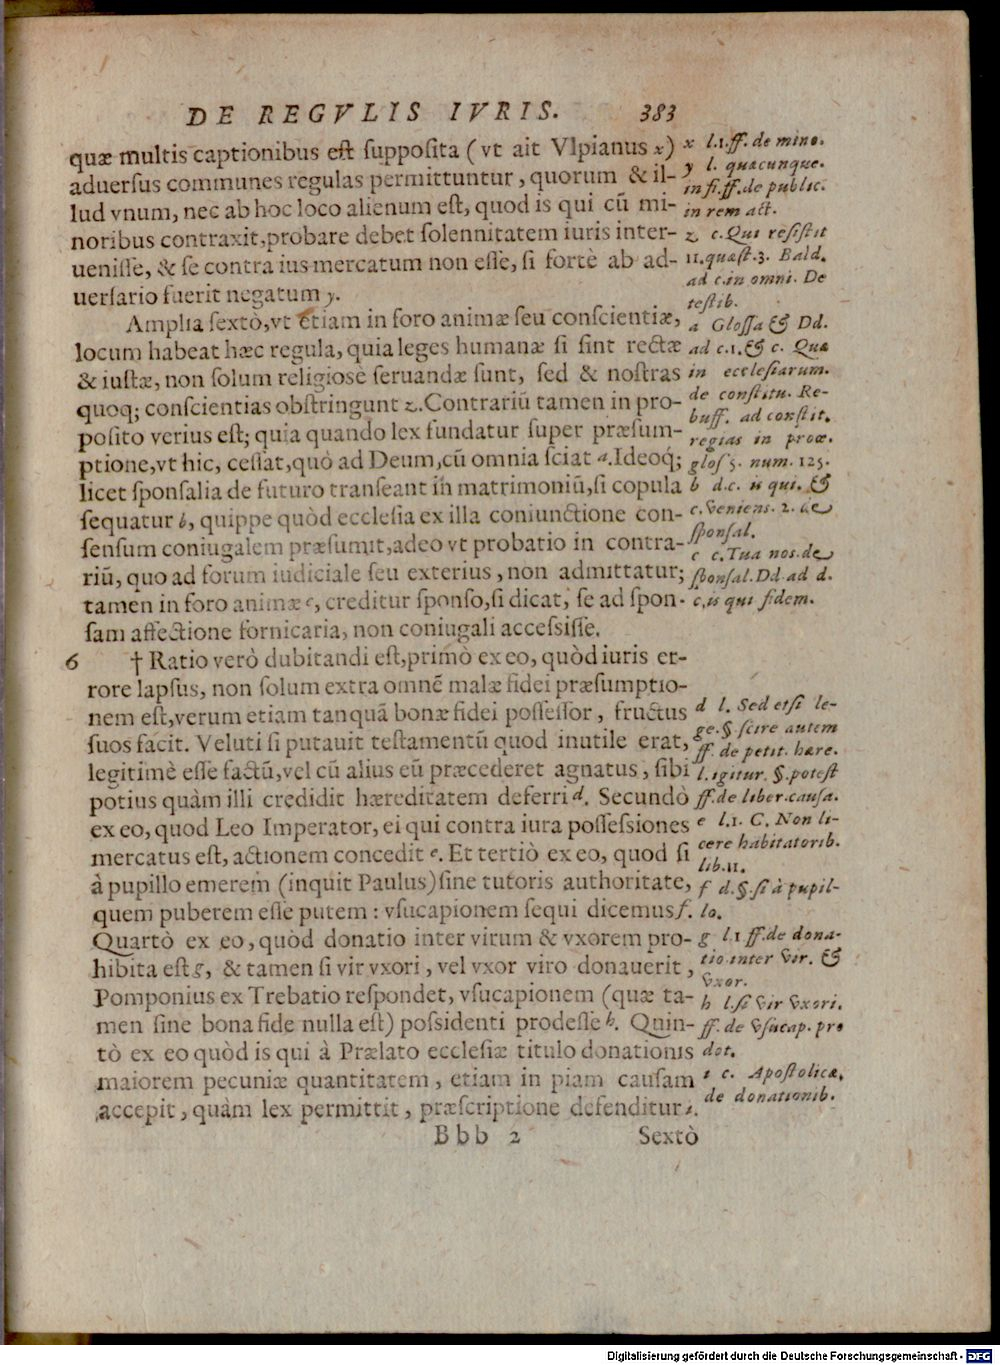 DE REGVLIS IVRIS. 383
quæ multis captionibus eſt ſuppoſita (vt ait Vlpianus x)
aduerſus communes regulas permittuntur, quorum & il-
lud vnum, nec ab hoc loco alienum eſt, quod is qui cũ mi-
noribus contraxit, probare debet ſolennitatem iuris inter-
ueniſſe, & ſe contra ius mercatum non eſſe, ſi fortè ab ad-
uerſario fuerit negatum y.
Amplia ſextò, vt etiam in foro animæ ſeu conſcientiæ,
locum habeat hæc regula, quia leges humanæ ſi ſint rectæ
& iuſtæ, non ſolum religioſè ſeruandæ ſunt, ſed & noſtras
quoq; conſcientias obſtringunt z. Contrariũ tamen in pro-
poſito verius eſt; quia quando lex fundatur ſuper præſum-
ptione, vt hic, ceſſat, quò ad Deum, cũ omnia ſciat a. Ideoq;
licet ſponſalia de futuro tranſeant in matrimoniũ, ſi copula
ſequatur b, quippe quòd eccleſia ex illa coniunctione con-
ſenſum coniugalem præſumit, adeo vt probatio in contra-
riũ, quo ad forum iudiciale ſeu exterius, non admittatur;
tamen in foro animæ c, creditur ſponſo, ſi dicat, ſe ad ſpon-
ſam affectione fornicaria, non coniugali acceſsiſſe.
6 † Ratio verò dubitandi eſt, primò ex eo, quòd iuris er-
rore lapſus, non ſolum extra omnẽ malæ fidei præſumptio-
nem eſt, verum etiam tanquã bonæ fidei poſſeſſor, fructus
ſuos facit. Veluti ſi putauit teſtamentũ quod inutile erat,
legitimè eſſe factũ, vel cũ alius eũ præcederet agnatus, ſibi
potius quàm illi credidit hæreditatem deferri d. Secundò
ex eo, quod Leo Imperator, ei qui contra iura poſſeſsiones
mercatus eſt, actionem concedit e. Et tertiò ex eo, quod ſi
à pupillo emerem (inquit Paulus) ſine tutoris authoritate,
quem puberem eſſe putem: vſucapionem ſequi dicemus f.
Quartò ex eo, quòd donatio inter virum & vxorem pro-
hibita eſt g, & tamen ſi vir vxori, vel vxor viro donauerit,
Pomponius ex Trebatio reſpondet, vſucapionem (quæ ta-
men ſine bona fide nulla eſt) poſsidenti prodeſſe h. Quin-
tò ex eo quòd is qui à Prælato eccleſiæ titulo donationis
maiorem pecuniæ quantitatem, etiam in piam cauſam
accepit, quàm lex permittit, præſcriptione defenditur i.
Bbb 2 Sextò
x l.1.ff. de mino.
y l. quæcunque.
in fi.ff.de public.
in rem act.
z c. Qui reſiſtit
11.quæſt.3. Bald.
ad c.in omni. De
teſtib.
a Gloſſa & Dd.
ad c.1.& c. Quæ
in eccleſiarum.
de conſtitu. Re-
buff. ad conſtit.
regias in proœ.
gloſ 5. num. 125.
b d.c. is qui. &
c. Veniens. 2. de
ſponſal.
c c. Tua nos. de
ſponſal. Dd. ad d.
c. is qui fidem.
d l. Sed etſi le-
ge. §. ſcire autem
ff. de petit. hære.
l. igitur. §. poteſt
ff. de liber. cauſa.
e l.1. C. Non li-
cere habitatorib.
lib.11.
f d.§. ſi à pupil-
lo.
g l.1 ff. de dona-
tio inter vir. &
vxor.
h l. ſi vir vxori.
ff. de vſucap. pro
dot.
i c. Apoſtolicæ.
de donationib.
Digitalisierung gefördert durch die Deutsche Forschungsgemeinschaft - DFG